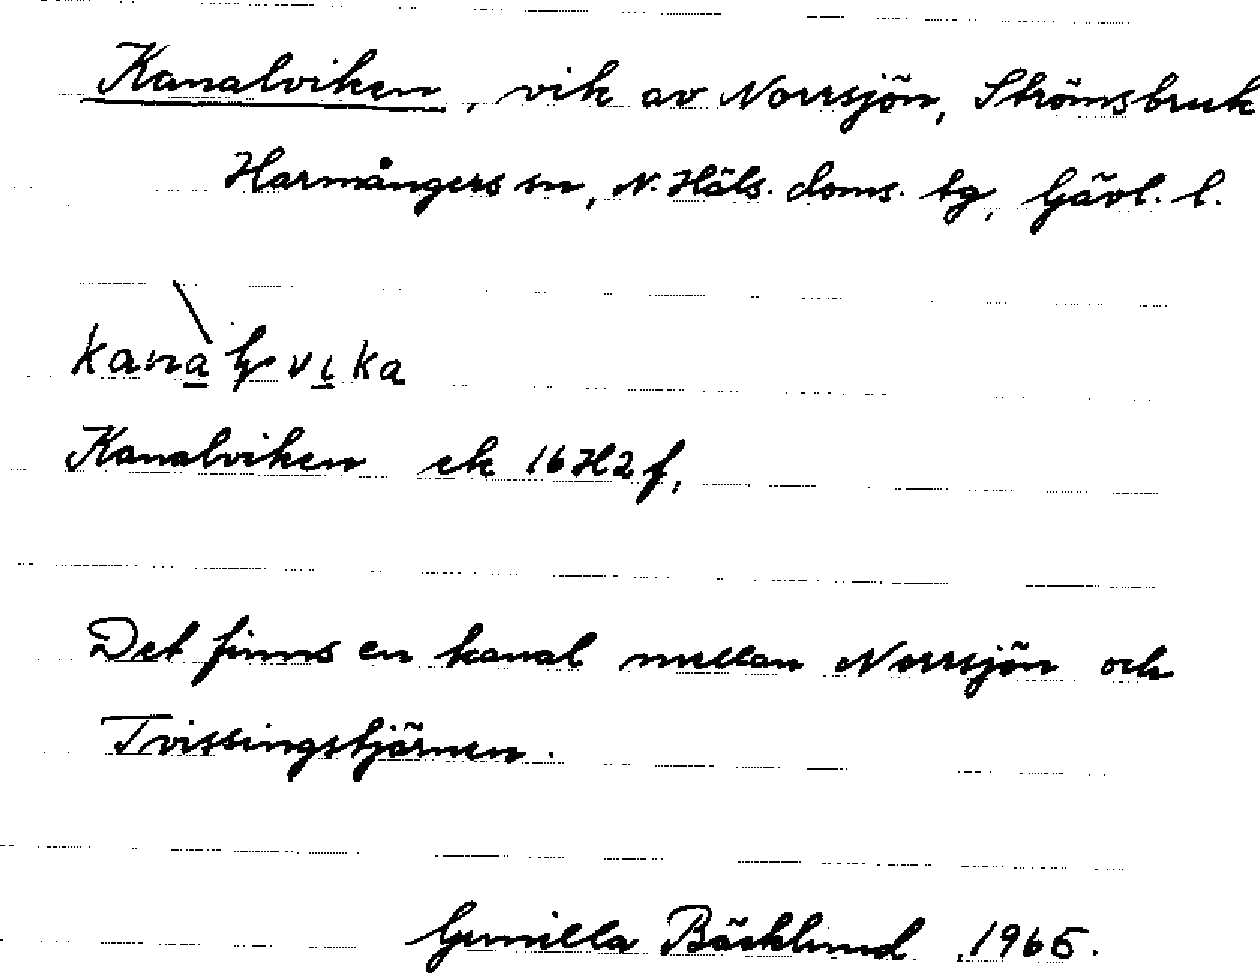 Kanalviken, vik av Norrsjön, Strömsbruk
Harmångers sn, N. Häls. doms. tg, Gävl. l.
Kanalviken ek 16H2f,
Det finns en kanal mellan Norrsjön och
Tvissingstjärnen.
Gunilla Bäcklund 1965.